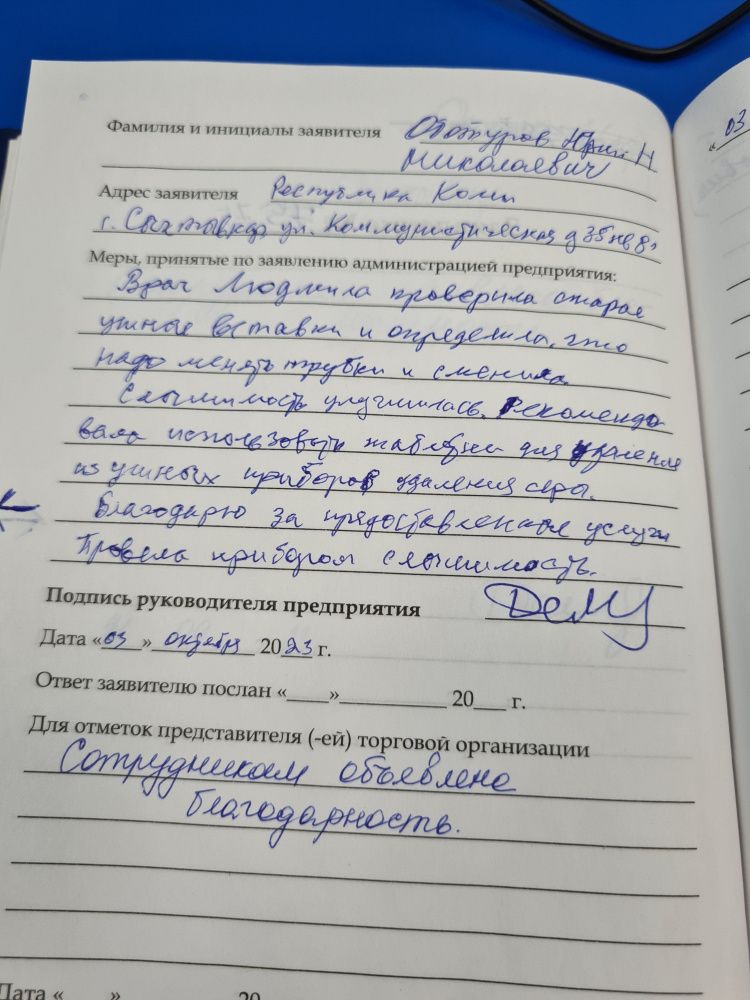 Фамилия и инициалы заявителя Обатуров Юрий Н
Николаевич
Адрес заявителя Республика Коми
г. Сыктывкар, ул. Коммунистическая д 35
Меры, принятые по заявлению администрацией предприятия:
Врач Людмила проверила старые
ушные вставки и определила, что
надо менять трубки и сменила.
Слышимость улучшилась. Рекомендо
вала использовать таблетки для удаления
из ушных приборов удаления серы.
Благодарю за предоставленные услуги
Провела прибором слышимость.
Подпись руководителя предприятия
Дата «03» октября 2023 г.
Ответ заявителю послан «____»__________ 20___ г.
Для отметок представителя (-ей) торговой организации
Сотрудникам объявлена
благодарность.
Дата «____» 20
03